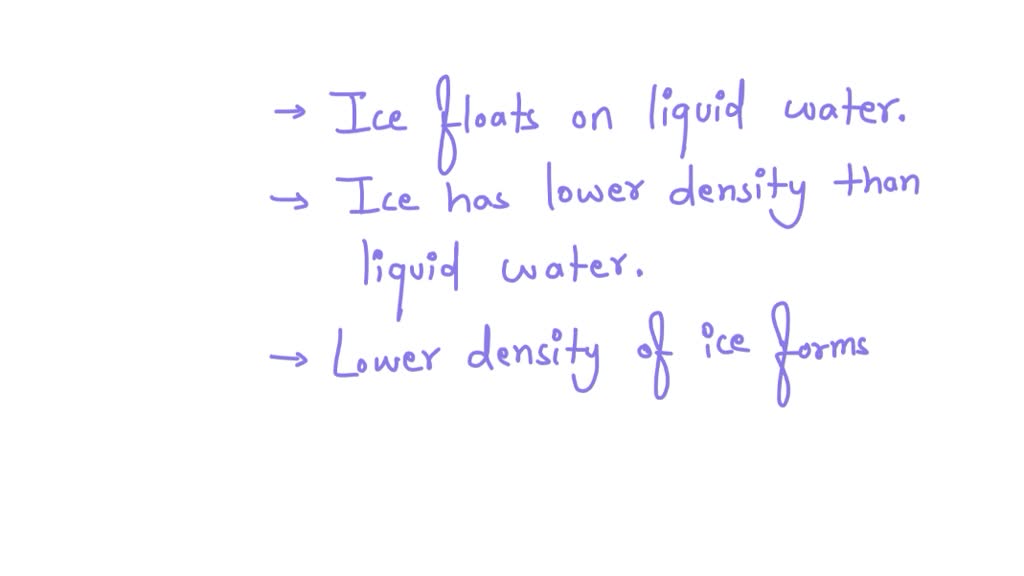 → Ice floats on liquid water.
→ Ice has lower density than
liquid water.
→ Lower density of ice forms